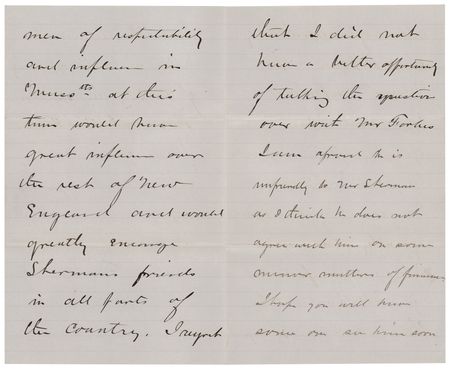 men of respectability
and influence in
Masstts at this
time would have
great influence over
the rest of New
England and would
greatly encourage
Shermans friends
in all parts of
the country. I regret
that I did not
have a better opportunity
of talking the question
over with Mr Forbes
I am afraid he is
unfriendly to Mr Sherman
as I think he does not
agree with him on some
minor matters of finance.
I hope you will have
some one see him soon